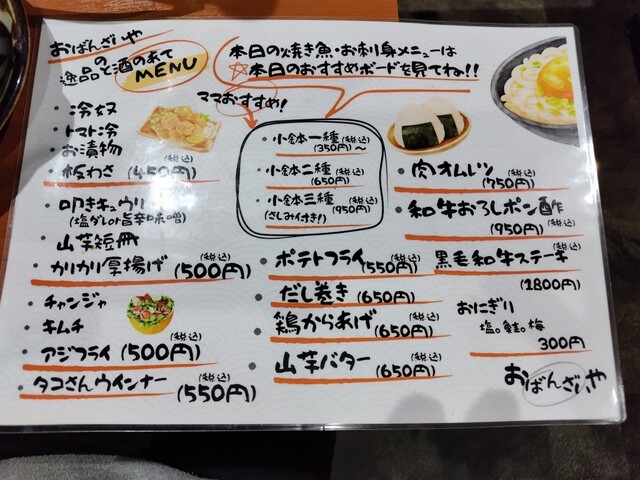 おばんざいや
の
逸品と酒のあて
MENU
本日の焼き魚・お刺身メニューは
☆本日のおすすめボードを見てね!!
ママおすすめ!
・冷奴
・トマト冷
・お漬物
・板わさ (税込)(450円)
・叩きキュウリ
(塩ダレor旨辛味噌)
・山芋短冊
・カリカリ厚揚げ (税込)(500円)
・チャンジャ
・キムチ
・アジフライ (税込)(500円)
・タコさんウインナー (税込)(550円)
・小鉢一種 (税込)(350円)~
・小鉢二種 (税込)(650円)
・小鉢三種 (税込)(950円)
(さしみ付き!)
・ポテトフライ (税込)(550円)
・だし巻き (税込)(650円)
・鶏からあげ (税込)(650円)
・山芋バター (税込)(650円)
・肉オムレツ (税込)(750円)
・和牛おろしポン酢 (税込)(950円)
・黒毛和牛ステーキ (税込)
(1800円)
おにぎり
塩。鮭。梅 (税込)
300円
おばんざいや